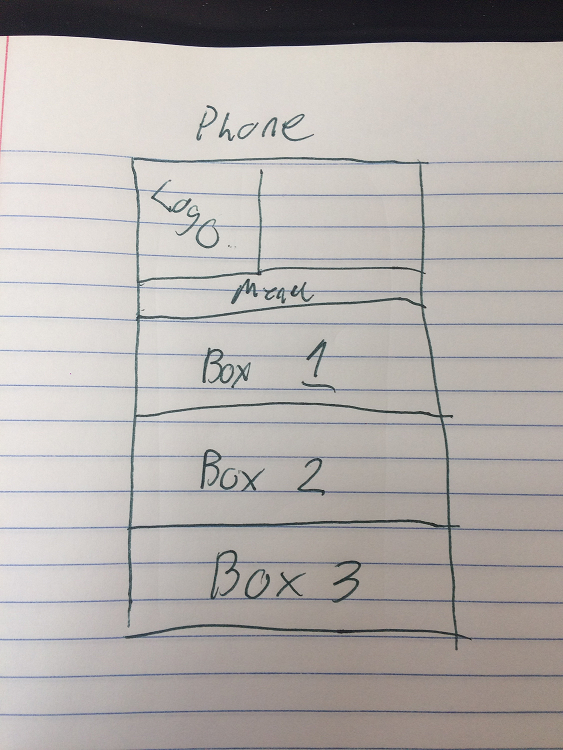 Phone
Logo
Menu
Box 1
Box 2
Box 3